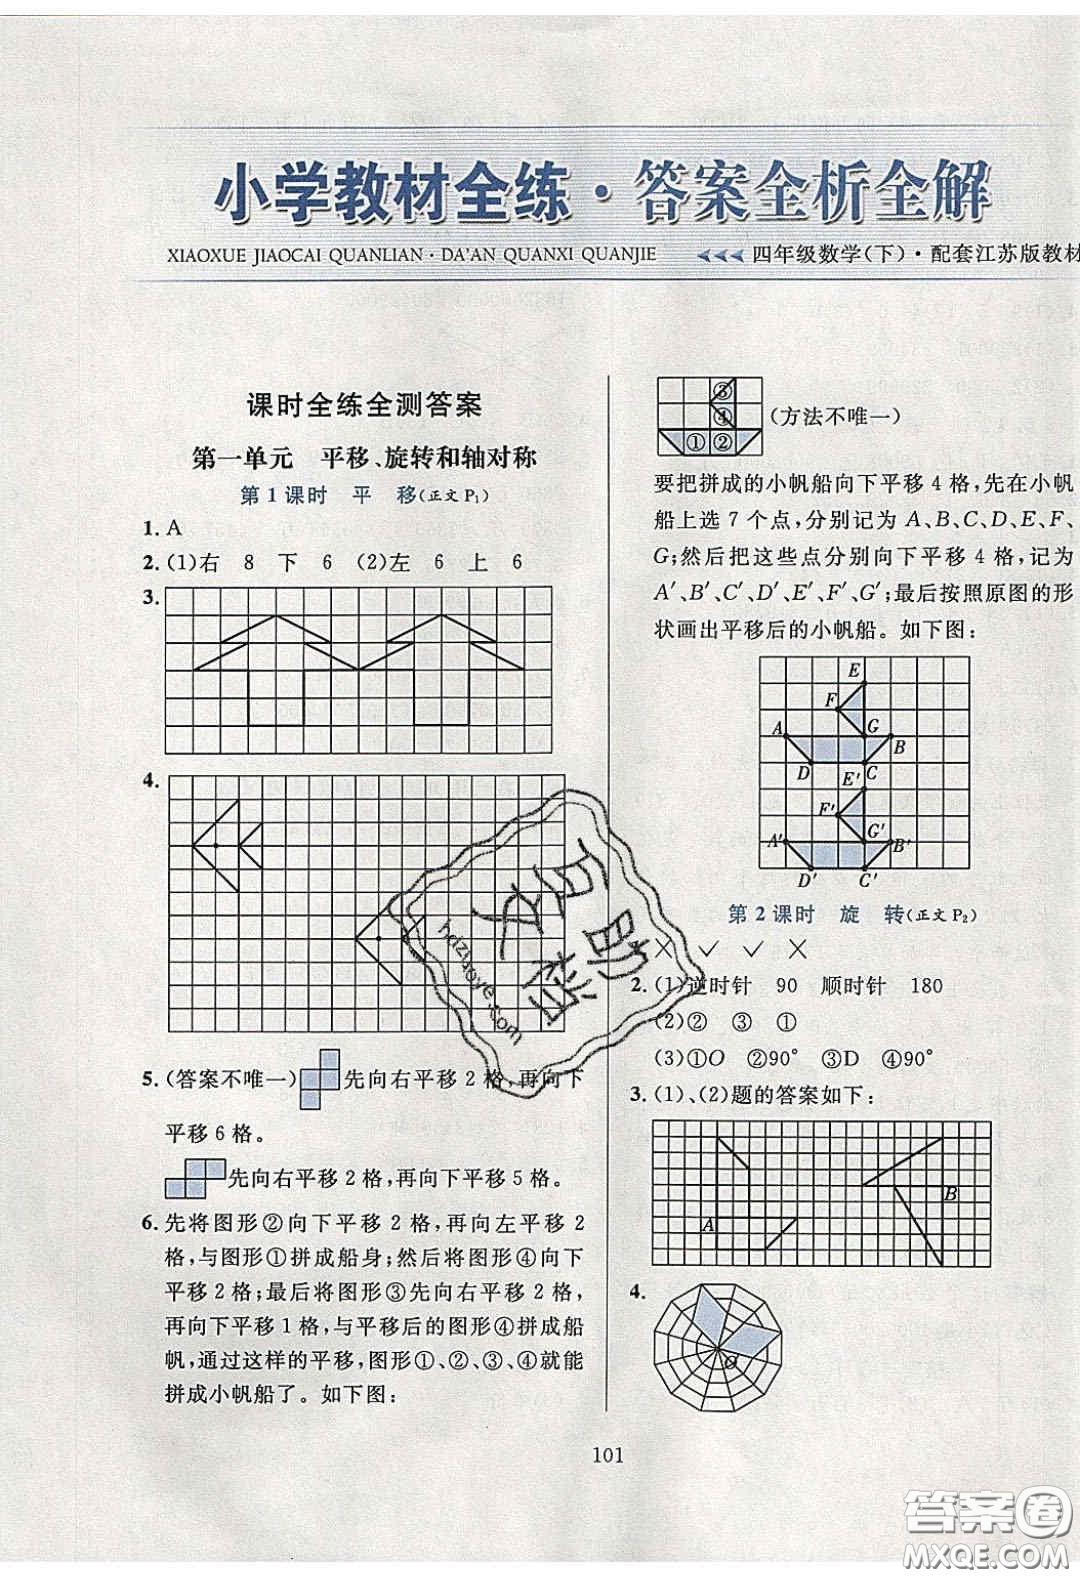 小学教材全练·答案全析全解
XIAOXUE JIAOCAI QUANLIAN · DA'AN QUANXI QUANJIE
四年级数学(下)·配套江苏版教材
课时全练全测答案
第一单元 平移、旋转和轴对称
第1课时 平 移(正文P₁)
1. A
2. (1)右 8 下 6 (2)左 6 上 6
3.
4.
5. (答案不唯一)先向右平移2格,再向下
平移6格。
先向右平移2格,再向下平移5格。
6. 先将图形②向下平移2格,再向左平移2
格,与图形①拼成船身;然后将图形④向下
平移2格;最后将图形③先向右平移2格,
再向下平移1格,与平移后的图形④拼成船
帆,通过这样的平移,图形①、②、③、④就能
拼成小帆船了。如下图:
③
④
① ②
(方法不唯一)
要把拼成的小帆船向下平移4格,先在小帆
船上选7个点,分别记为A、B、C、D、E、F、
G;然后把这些点分别向下平移4格,记为
A′、B′、C′、D′、E′、F′、G′;最后按照原图的形
状画出平移后的小帆船。如下图:
E
F
A G B
D C
E′
F′
A′ G′ B′
D′ C′
第2课时 旋 转(正文P₂)
× ✓ ✓ ×
2. (1)逆时针 90 顺时针 180
(2)② ③ ①
(3)①O ②90° ③D ④90°
3. (1)、(2)题的答案如下:
A
B
4.
O
101
作业
帮
答案
hdzuoye.com
答案圈
MXQE.COM